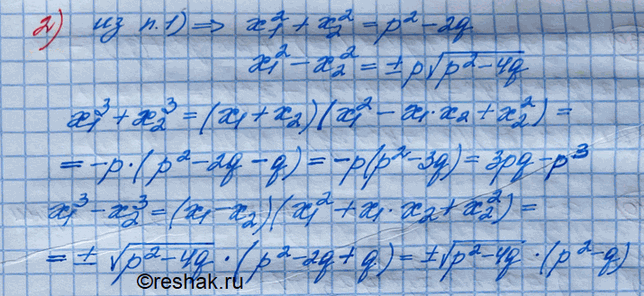 2) из п.1) ⇒ x₁² + x₂² = p² - 2q
x₁² - x₂² = ± p√(p² - 4q)
x₁³ + x₂³ = (x₁ + x₂)(x₁² - x₁·x₂ + x₂²) =
= -p·(p² - 2q - q) = -p(p² - 3q) = 3pq - p³
x₁³ - x₂³ = (x₁ - x₂)(x₁² + x₁·x₂ + x₂²) =
= ± √(p² - 4q)·(p² - 2q + q) = ± √(p² - 4q)·(p² - q)
©reshak.ru